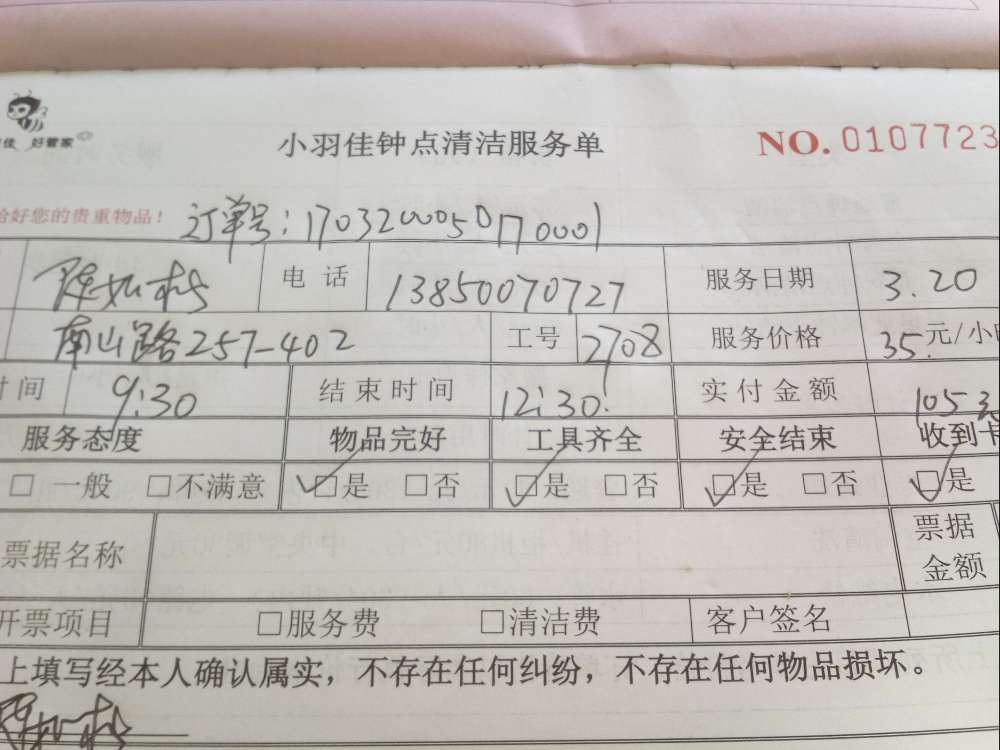 佳 好管家
小羽佳钟点清洁服务单
NO. 0107723
给好您的贵重物品! 订单号:1703200050170001
电话 13850070727 服务日期 3.20
南山路257-402 工号 2708 服务价格 35.元/小时
时间 9:30 结束时间 12:30 实付金额 105元
服务态度 物品完好 工具齐全 安全结束 收到卡
□一般 □不满意 □是 □否 □是 □否 □是 □否 □是
票据名称 票据金额
开票项目 □服务费 □清洁费 客户签名
上填写经本人确认属实,不存在任何纠纷,不存在任何物品损坏。